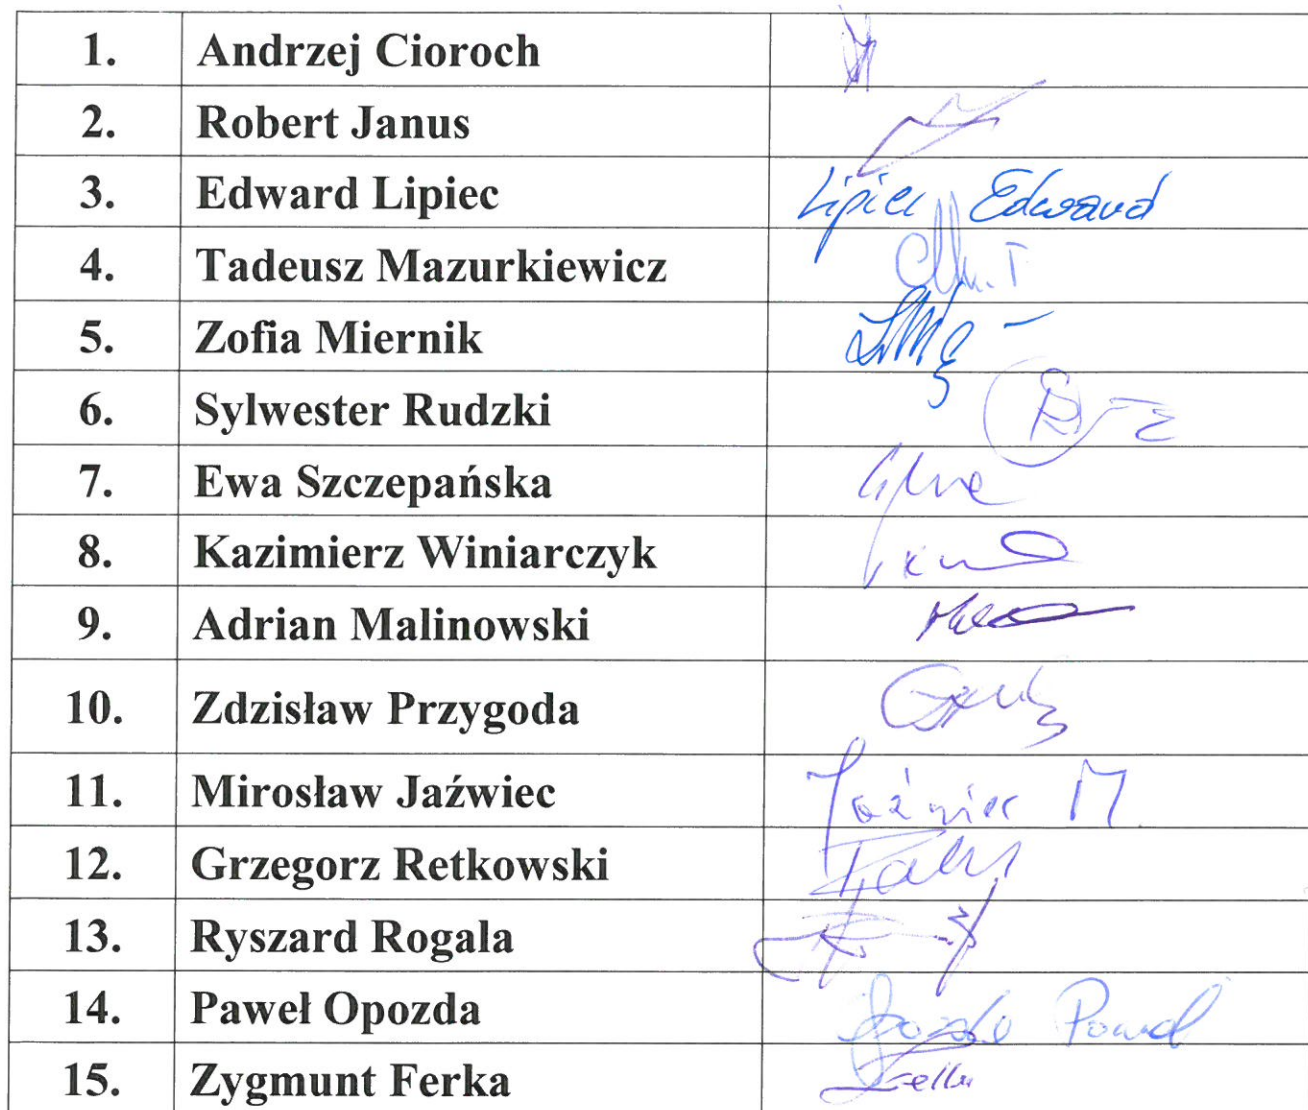 1. Andrzej Cioroch
2. Robert Janus
3. Edward Lipiec Lipiec Edward
4. Tadeusz Mazurkiewicz
5. Zofia Miernik
6. Sylwester Rudzki
7. Ewa Szczepańska
8. Kazimierz Winiarczyk
9. Adrian Malinowski
10. Zdzisław Przygoda
11. Mirosław Jaźwiec Jaźwiec M
12. Grzegorz Retkowski
13. Ryszard Rogala
14. Paweł Opozda
15. Zygmunt Ferka